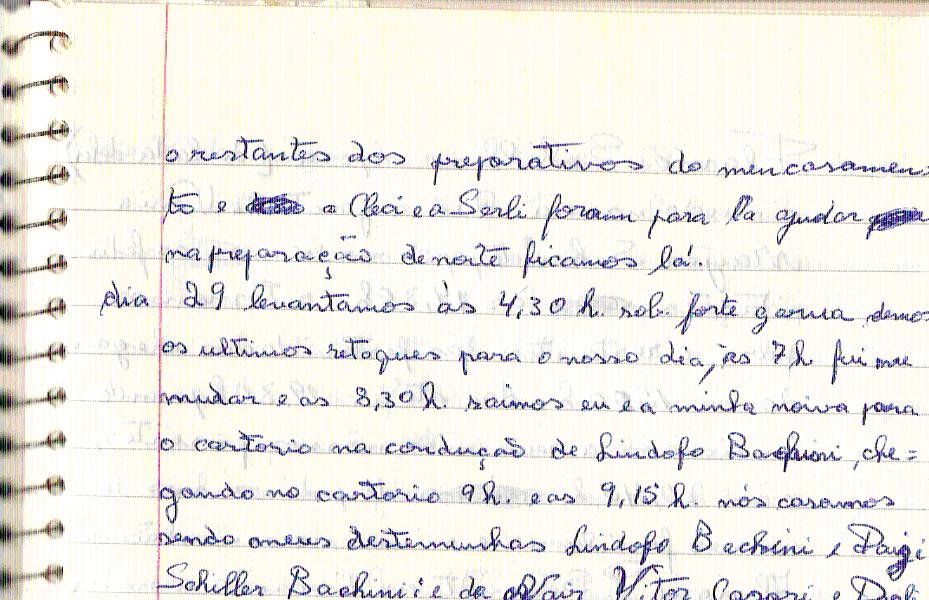 o restantes dos preparativos do meu casamen-
to e a Cleá e a Serli foram para la ajudar
na preparação de noite ficamos lá.
dia 29 levantamos às 4,30 h. sob. forte garua demos
os ultimos retoques para o nosso dia, às 7 h fui me
mudar e as 8,30 h. saimos eu e a minha noiva para
o cartorio na condução de Lindofo Bachini, che=
gando no cartorio 9 h. e as 9,15 h. nós casamos
sendo meus destemunhas Lindofo Bachini e
Schiller Bachini e da Nair Vitor Casari e